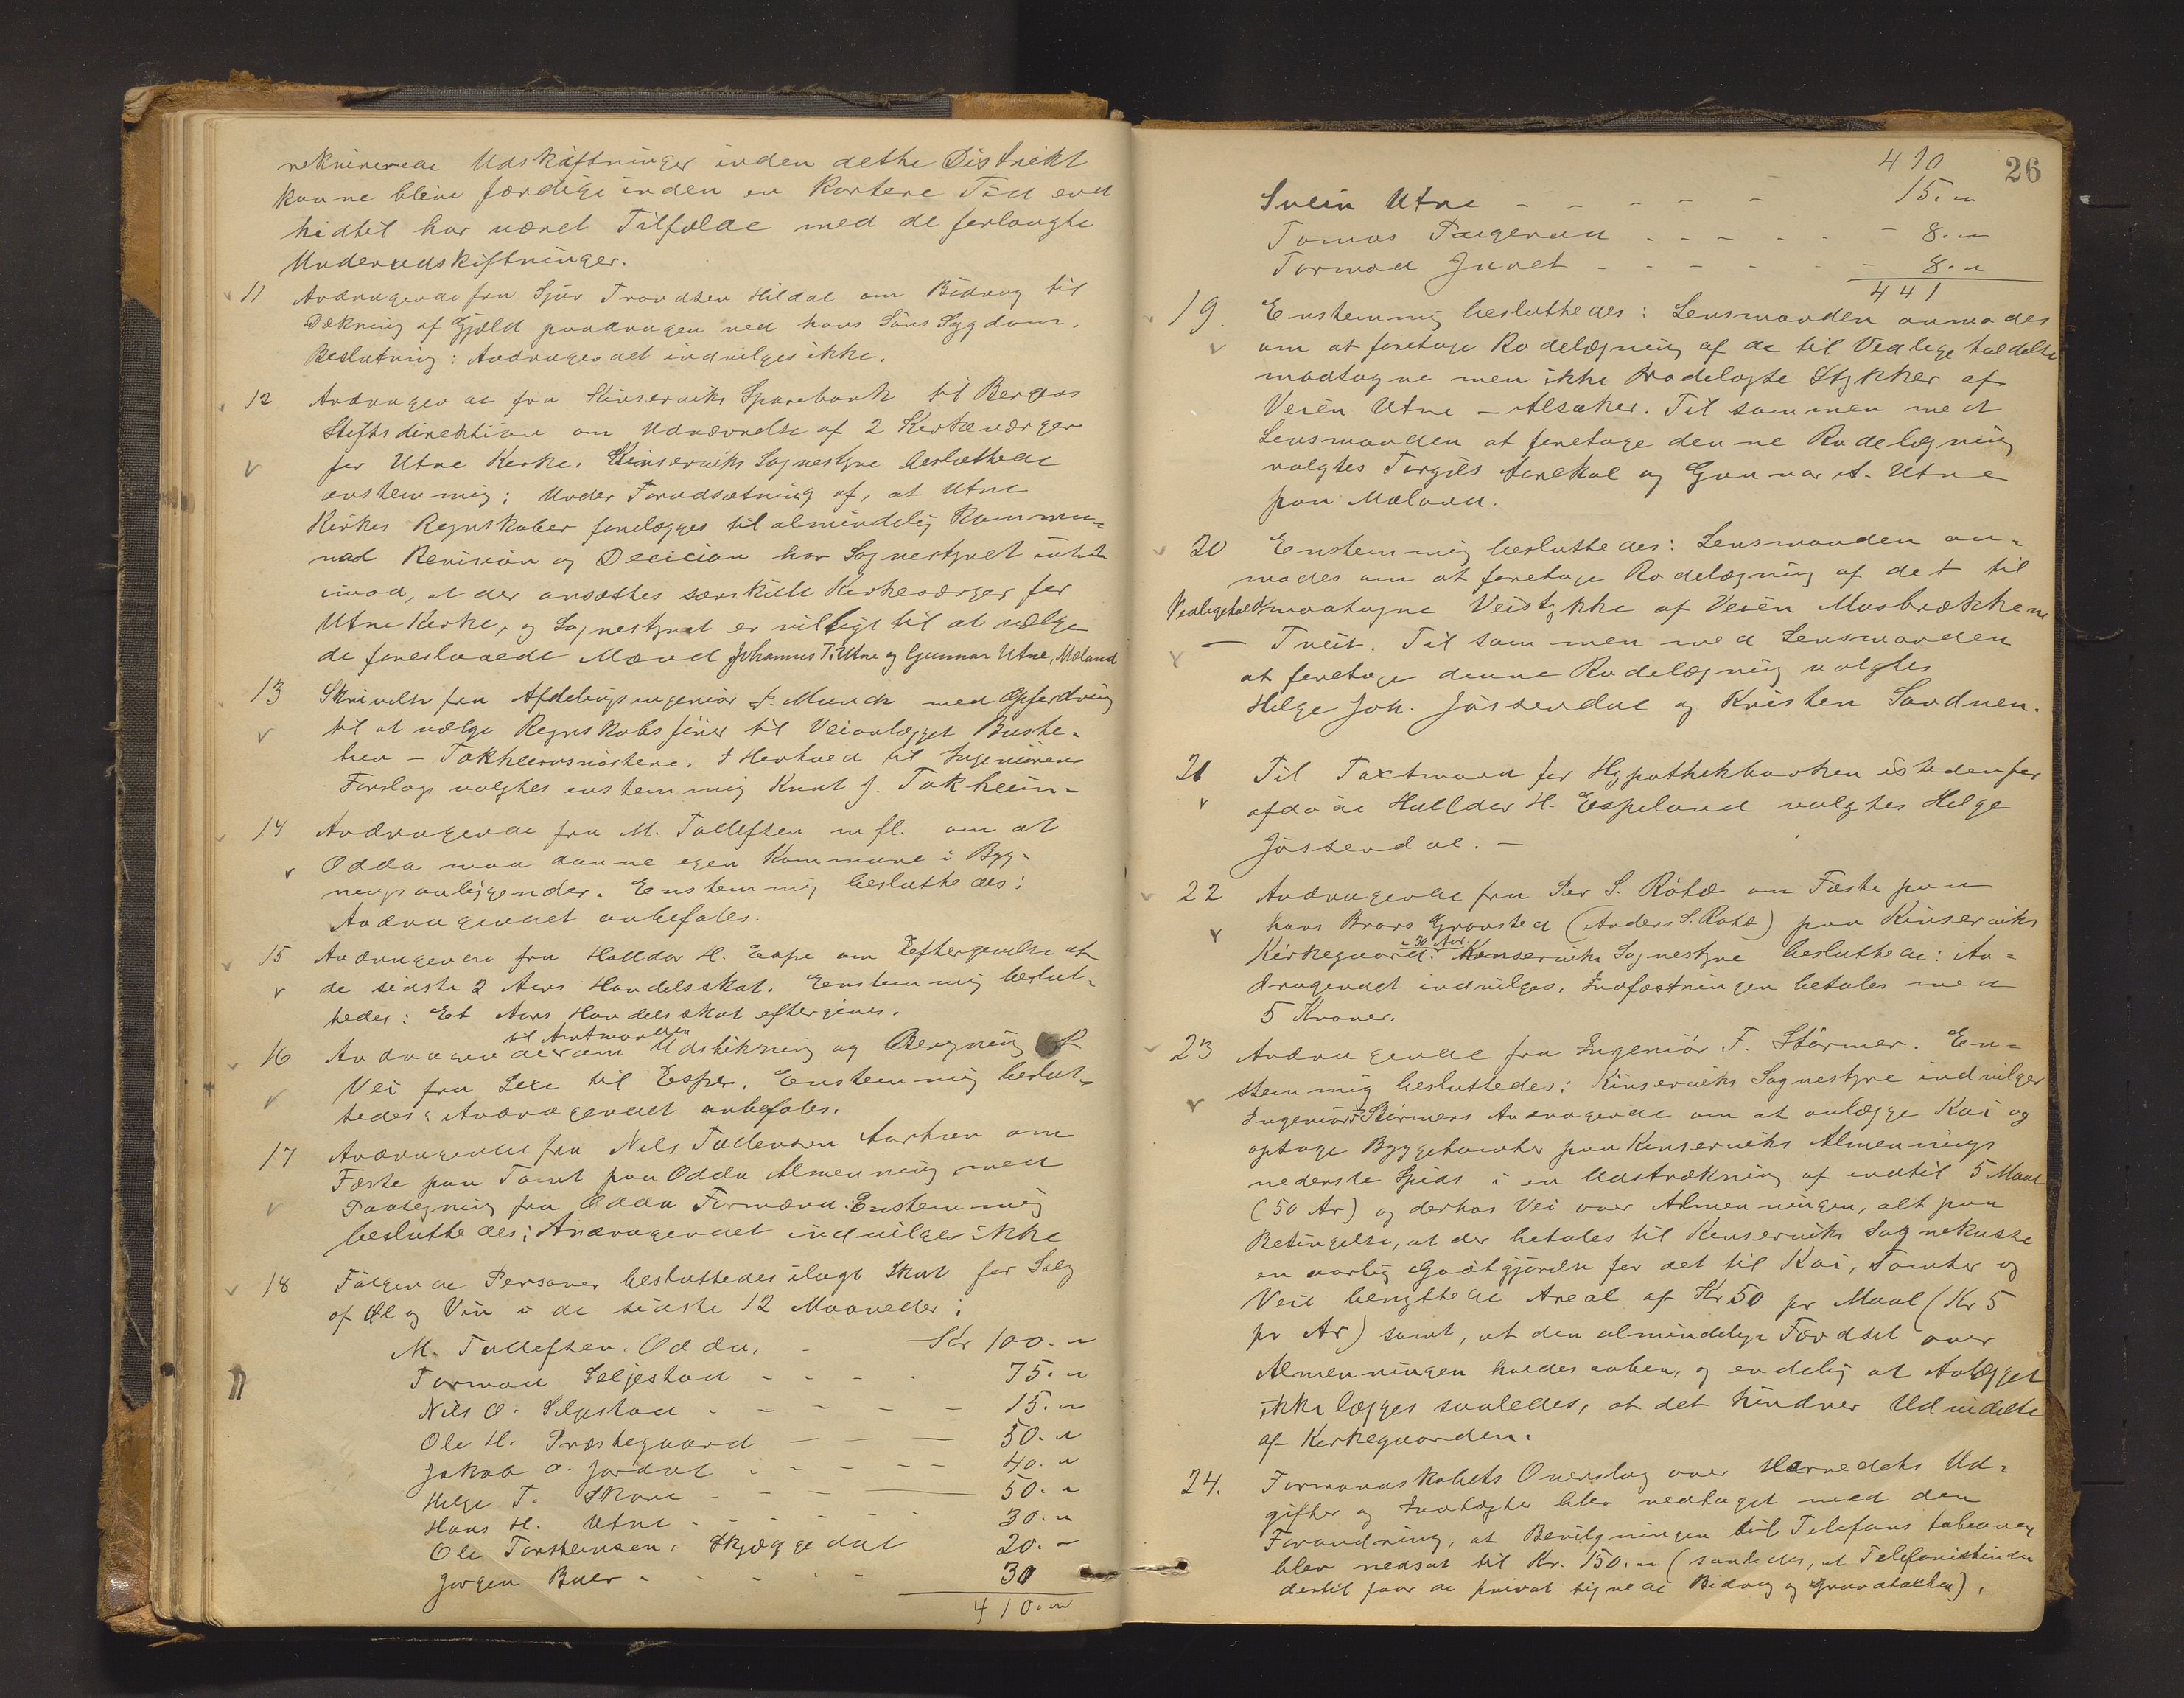 rekvirerede Udskiftninger inden dette Distrikt
kunne blive færdige inden en kortere Tid end
hidtil har været Tilfælde med de forlangte
Underudskiftninger.
11 Andragende fra Sjur Trondsen Hildal om Bidrag til
Dækning af Gjæld paadragen ved hans Søns Sygdom.
Beslutning: Andragendet indvilges ikke.
12 Andragende fra Kinserviks Sparebank til Bergens
Stiftsdirektion om Udnævnelse af 2 Kirkeværger
for Utne Kirke. Kinserviks Sognestyre besluttede
enstemmig: Under Forudsætning af, at Utne
Kirkes Regnskaber forelægges til almindelig Kommu-
nal Revision og Decision har Sognestyret intet
imod, at der ansættes særskilte Kirkeværger for
Utne Kirke, og Sognestyret er villigt til at vælge
de foreslaaede Mænd Johannes T. Utne og Gunnar Utne, Mæland
13 Skrivelse fra Afdelingsingeniør Munch med Opfordring
til at vælge Regnskabsfører til Veianlægget Buste-
tun - Tokheimsnøstene. I Henhold til Ingeniørens
Forslag valgtes enstemmig Knut J. Tokheim-
14 Andragende fra M. Tollefsen m fl. om at
Odda maa danne egen Kommune i Byg-
ningsanliggender. Enstemmig besluttedes:
Andragendet anbefales.
15 Andragende fra Halldor H. Espe om Eftergivelse af
de sidste 2 Aars Handelsskat. Enstemmig beslut-
tedes: Et Aars Handelsskat eftergives.
til Amtmanden
16 Andragende om Udstikning og Beregning af
Vei fra Lee til Espe. Enstemmig beslut-
tedes: Andragendet anbefales.
17 Andragende fra Nils Tollevsen Aarthun om
Fæste paa Tomt paa Odda Almenning med
Paategning fra Odda Formænd. Enstemmig
besluttedes: Andragendet indvilges ikke
18 Følgende Personer besluttedes ilagt Skat for Salg
af Øl og Vin i de sidste 12 Maaneder:
M. Tollefsen. Odda. - Kr 100.„
Tormod Seljestad - - - - 75.„
Nils O. Seljestad - - - - - 15.„
Ole H. Præstegaard - - - 50.„
Jakob O. Jordal - - - - - 40.„
Helge T. Skare - - - - 50.„
Hans H. Utne - - - - - 30.„
Ole Torsteinsen, Skjæggedal 20.„
Jørgen Buer - - - - - 30
410.„
26
410
Svein Utne - - - - - - 15.„
Tomas - - - - - - 8.„
Tormod Juvet - - - - - - 8.„
441
19. Enstemmig besluttedes: Lensmanden anmodes
om at foretage Rodelægning af de til Vedligeholdelse
modtagne men ikke rodelagte Stykker af
Veien Utne - Alsaker. Til sammen med
Lensmanden at foretage denne Rodelægning
valgtes Torgils Aerekol og Gunnar A. Utne
paa Mæland.
20 Enstemmig besluttedes: Lensmanden an-
modes om at foretage Rodelægning af det til
Vedligehold modtagne Veistykke af Veien Maabrækkene
- Tveit. Til sammen med Lensmanden
at foretage denne Rodelægning valgtes
Helge Joh. Jøssendal og Kristen Sandnen.
21 Til Taxtmand for Hypothekbanken istedenfor
afdøde Halldor H. Espeland valgtes Helge
Jøssendal. -
22 Andragende fra Per S. Røte om Fæste paa
hans Brors Gravsted (Anders S. Røte) paa Kinserviks
- 20 Aar -
Kirkegaard. Kinserviks Sognestyre besluttede: An-
dragendet indvilges. Indfæstningen betales med
5 Kroner.
23 Andragende fra Ingeniør F. Størmer. En-
stemmig besluttedes: Kinserviks Sognestyre indvilger
Ingeniør Størmers Andragende om at anlægge Kai og
optage Byggetomter paa Kinserviks Almennings
nederste Spids i en Udstrækning af indtil 5 Maal
(50 Ar) og derhos Vei over Almenningen, alt paa
Betingelse, at der betales til Kinserviks Sognekasse
en aarlig Godtgjørelse for det til Kai, Tomter og
Vei benyttede Areal af Kr 50 pr Maal (Kr 5
pr Ar) samt, at den almindelige Færdsel over
Almenningen holdes aaben, og endelig at Anlægget
ikke lægges saaledes, at det hindrer Udvidelse
af Kirkegaarden.
24. Formandskabets Overslag over Herredets Ud-
gifter og Indtægter blev vedtaget med den
Forandring, at Bevilgningen til Telefons
blev nedsat til Kr. 150.„ (saaledes, at Telefonistinden
dertil faar de privat tegnede Bidrag og Grundtakten).